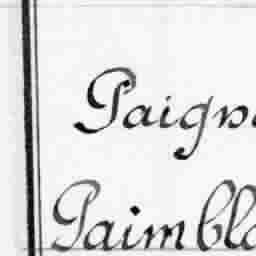 Paign
Paimbl